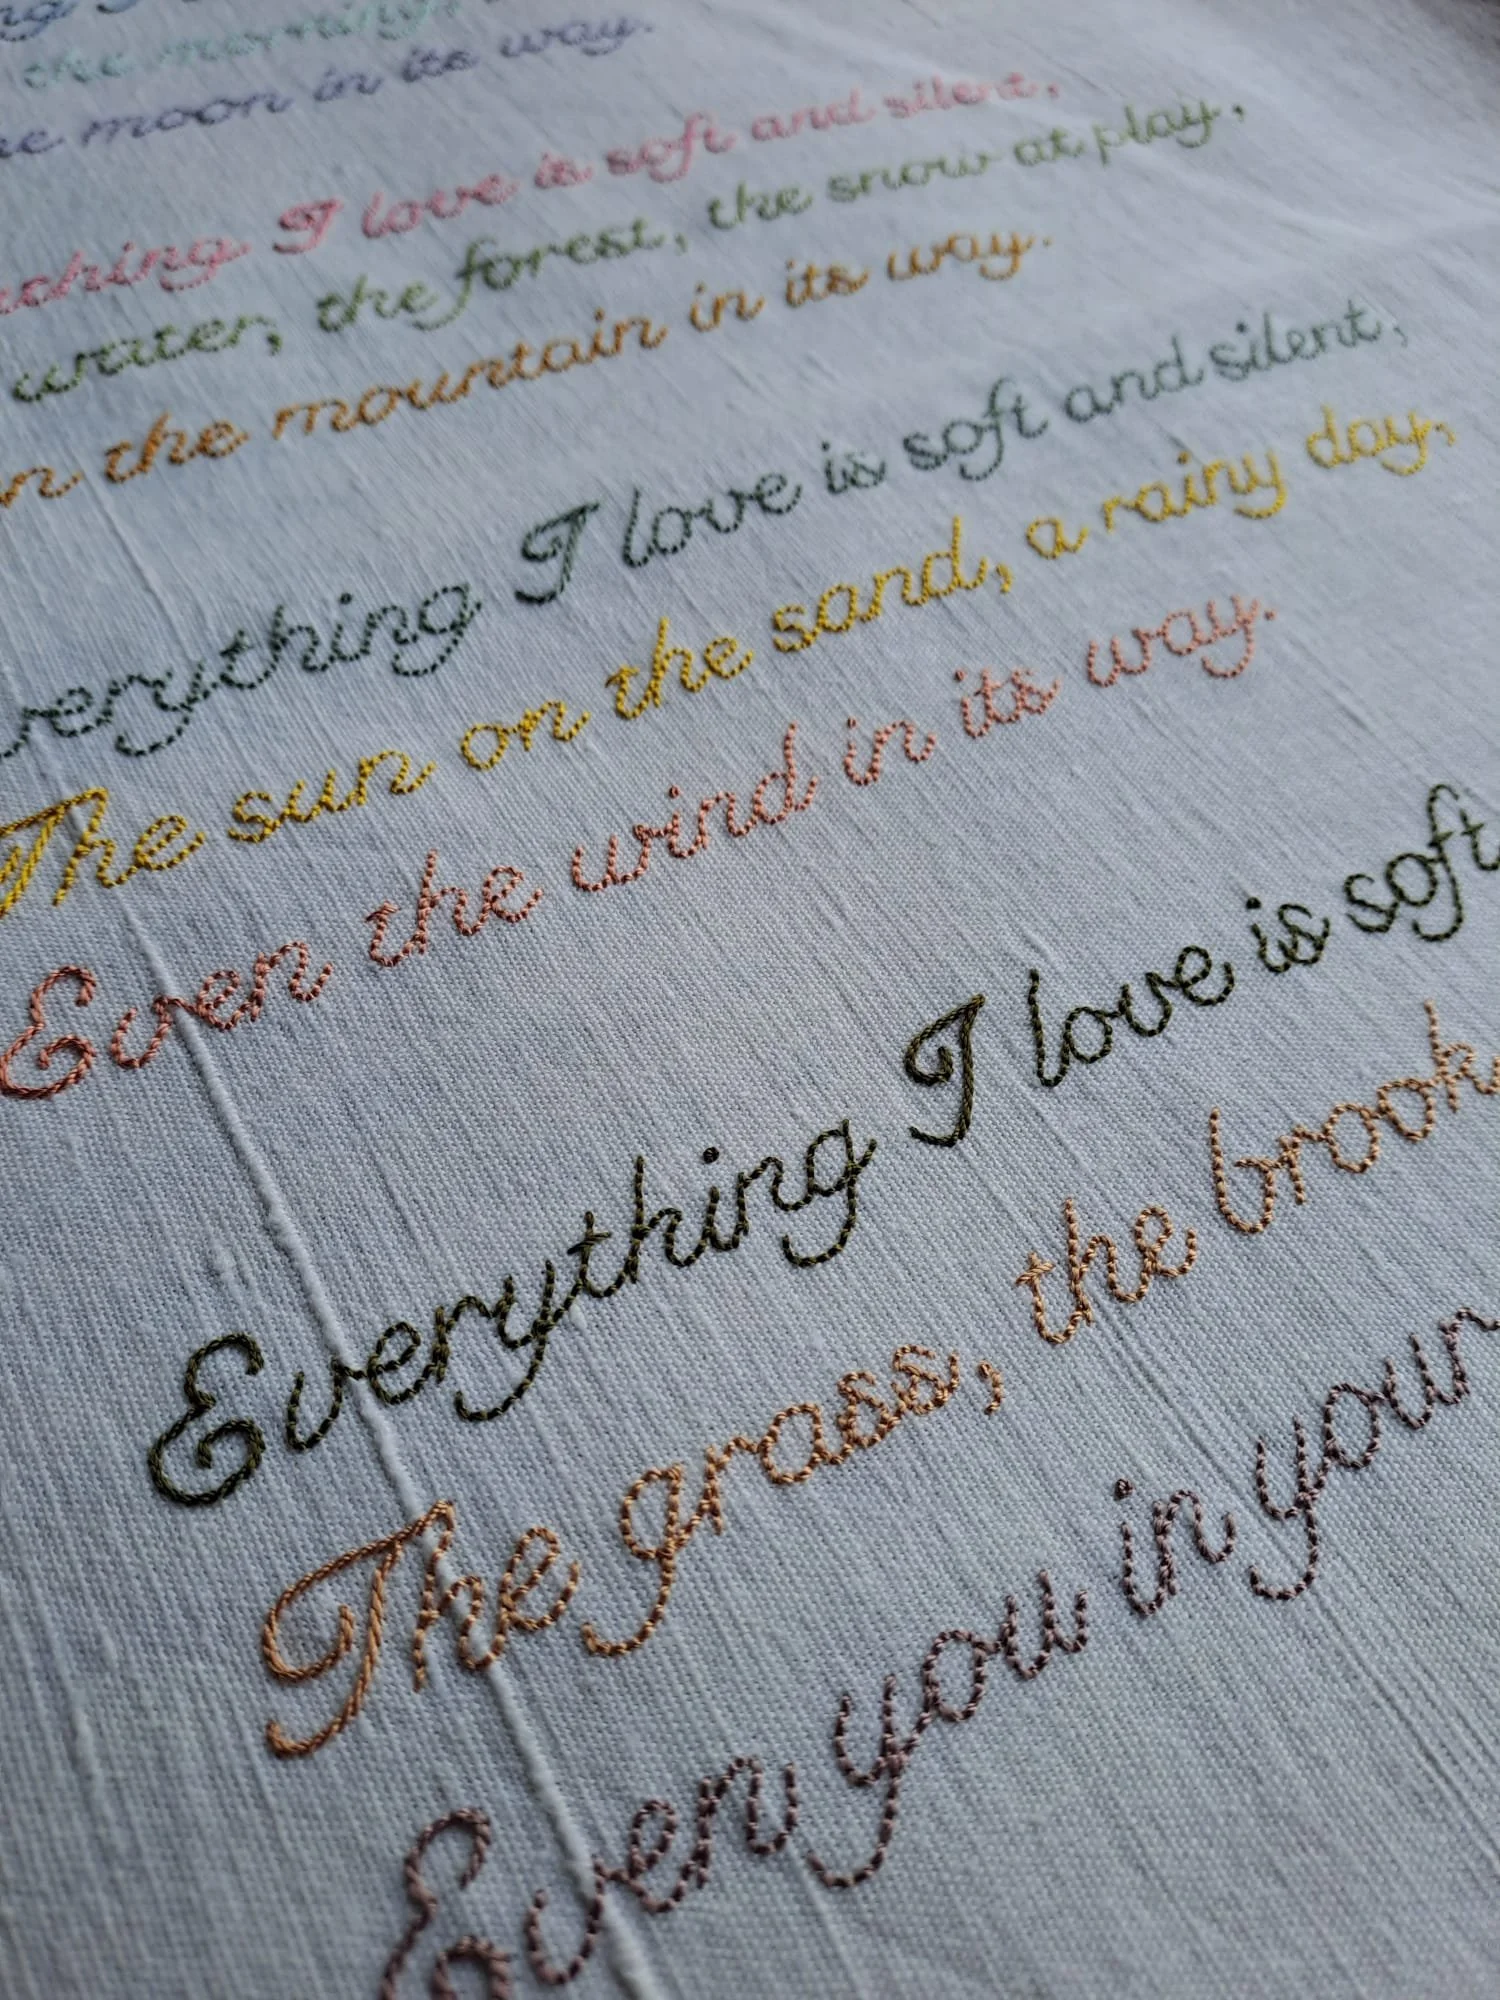 the morning,
moon in its way.
I love is soft and silent,
water, the forest, the snow at play,
the mountain in its way.
verything I love is soft and silent,
The sun on the sand, a rainy day,
Even the wind in its way.
Everything I love is soft
The grass, the brook
Even you in your